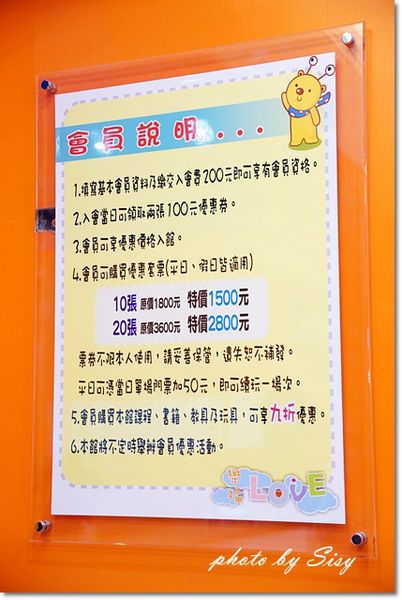 會員說明...
1.填寫基本會員資料及繳交入會費200元即可享有會員資格。
2.入會當日可領取兩張100元優惠券。
3.會員可享優惠價格入館。
4.會員可購買優惠套票(平日、假日皆適用)
10張 原價1800元 特價1500元
20張 原價3600元 特價2800元
票券不限本人使用，請妥善保管，遺失恕不補發。
平日可憑當日單場門票加50元，即可續玩一場次。
5.會員購買本館課程、書籍、教具及玩具，可享九折優惠。
6.本館將不定時舉辦會員優惠活動。
LOVE
photo by Sisy